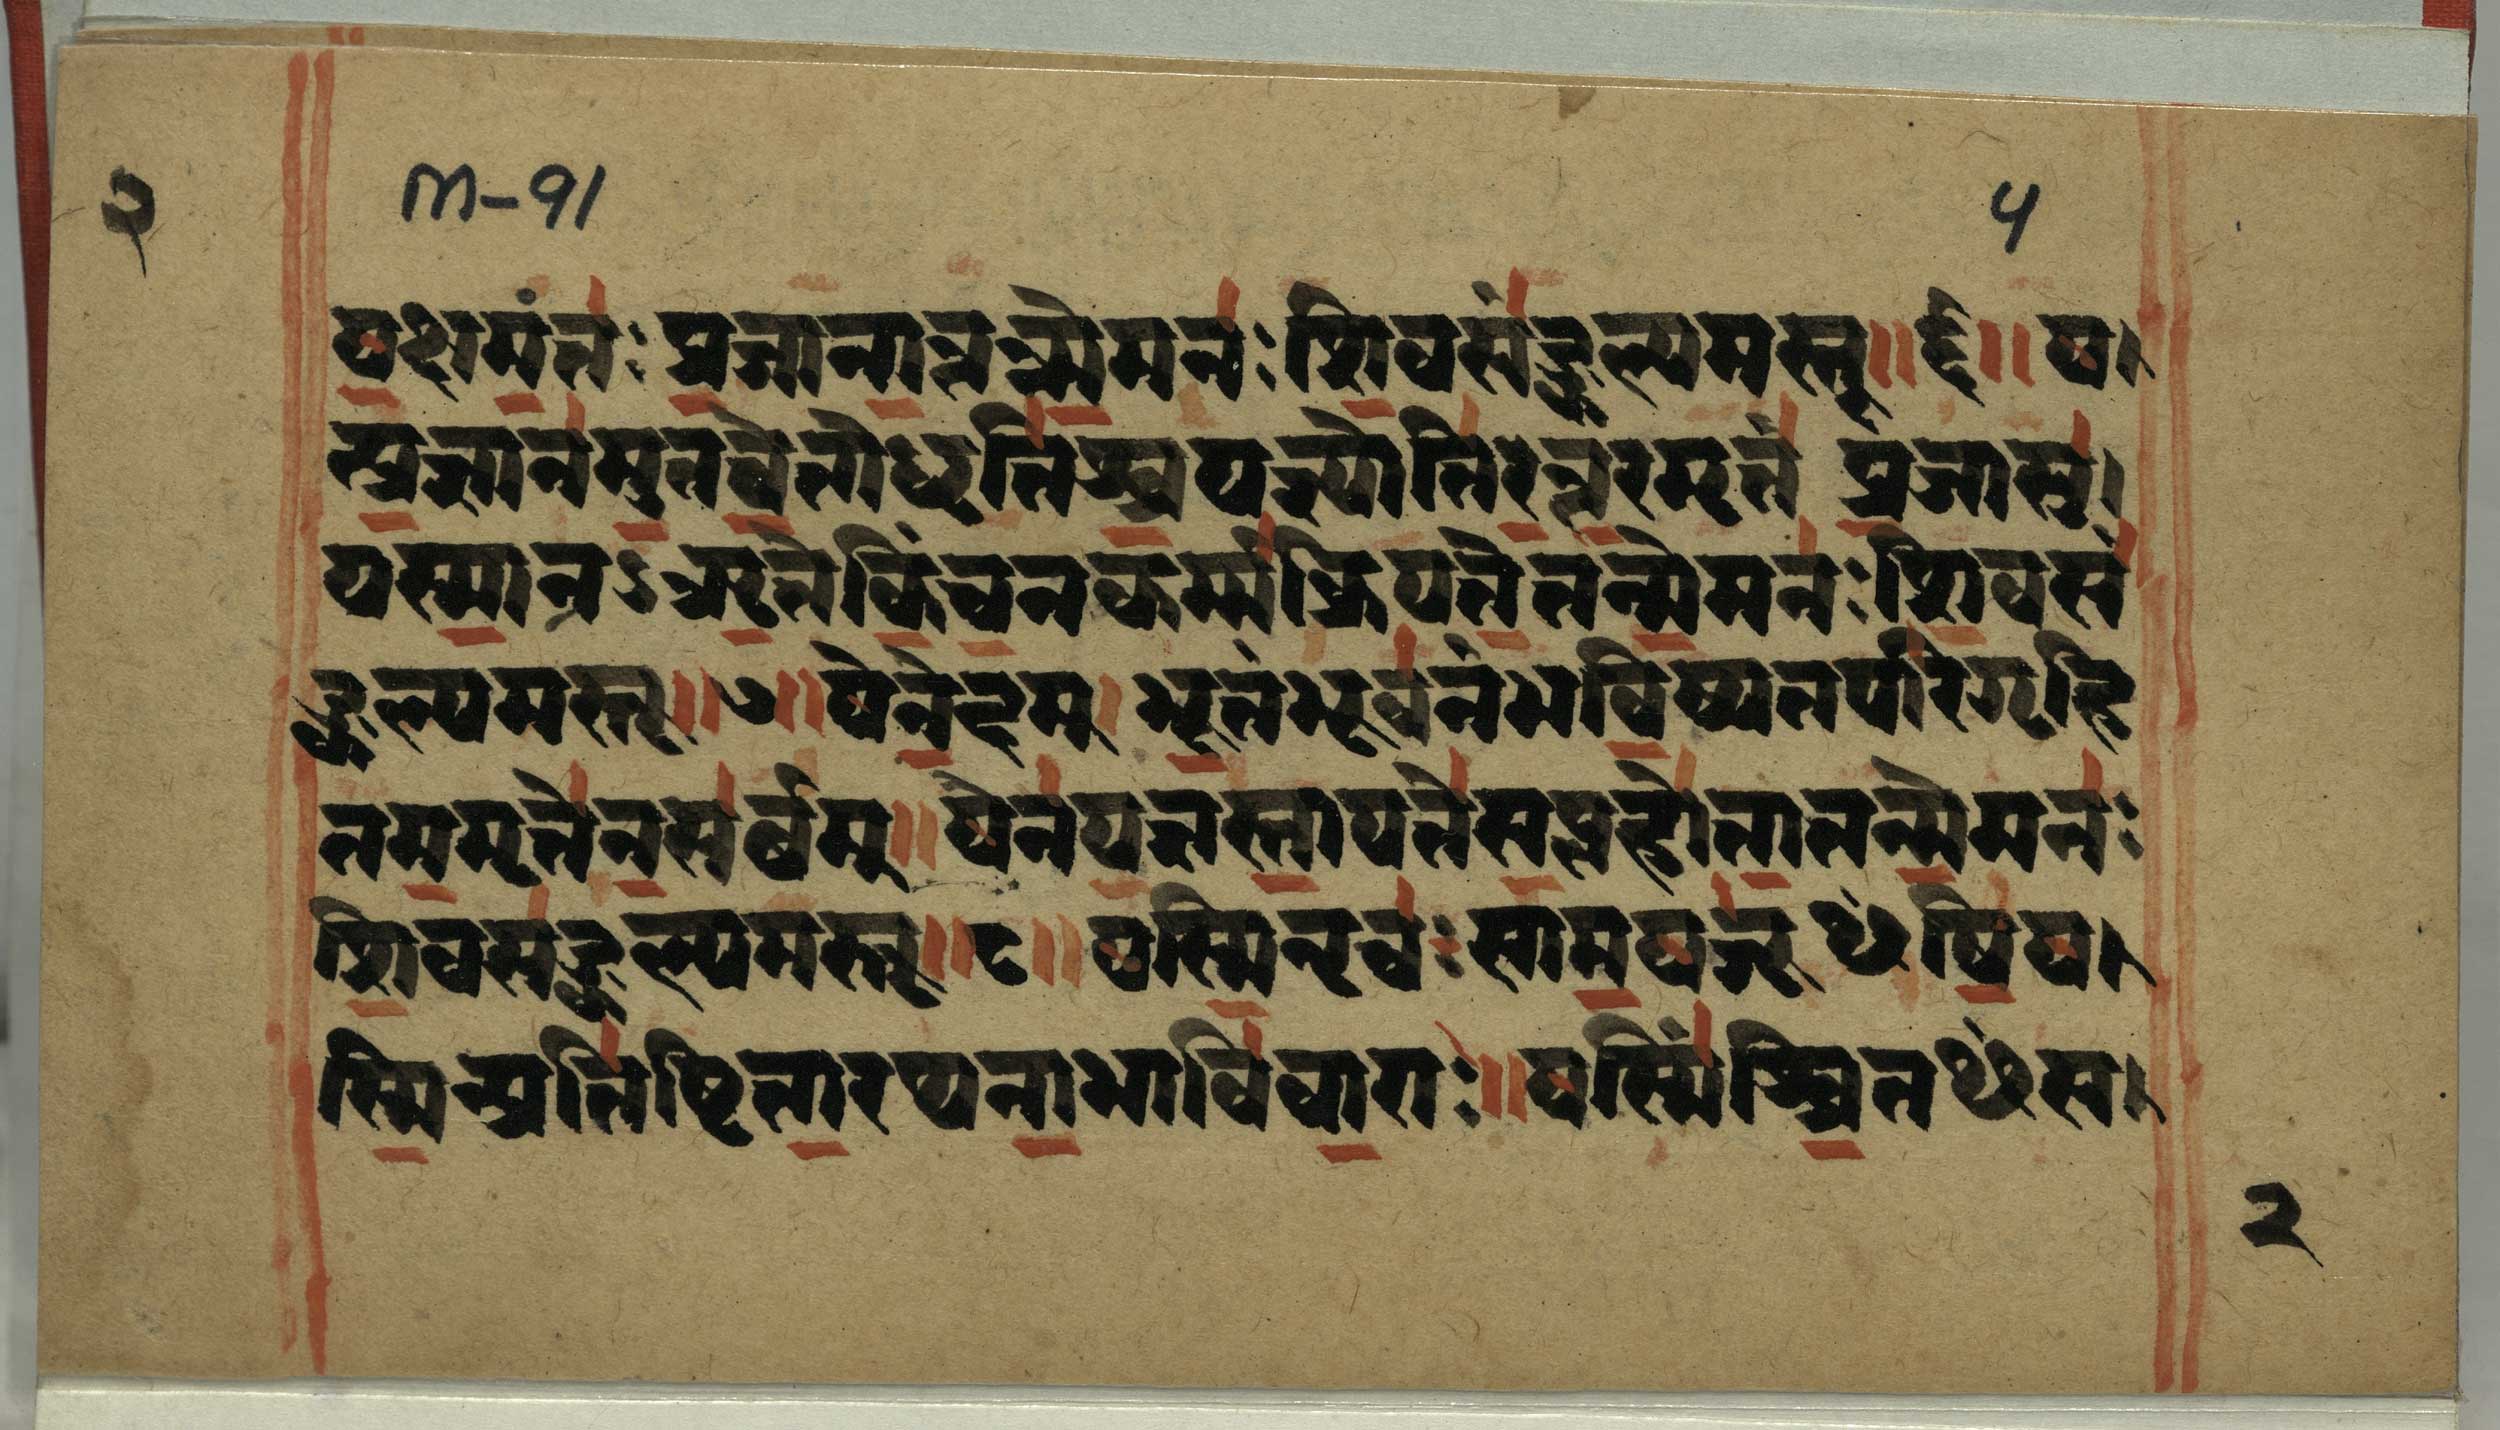 २
M-91
५
यक्षमन्तः प्रजानान्तन्मेमनः शिवसङ्कल्पमस्तु॥६॥ य।
त्प्रज्ञानमुतचेतोधृतिश्चयज्ज्योतिरन्तरमृतं प्रजासु।
यस्मान्नऽऋतेकिंचनकर्मक्रियतेतन्मेमनः शिवसं
ङ्कल्पमस्तु॥७॥येनेदम्भूतंभुवनंभविष्यतपरिगृही
तममृतेनसर्वम्॥येनयज्ञस्तायतेसप्तहोतातन्मेमनः
शिवसङ्कल्पमस्तु॥८॥यस्मिन्नृचः सामयजूᳪषिय।
स्मिन्प्रतिष्ठितारथनाभाविवाराः॥यस्मिंश्चित्तᳪस।
२